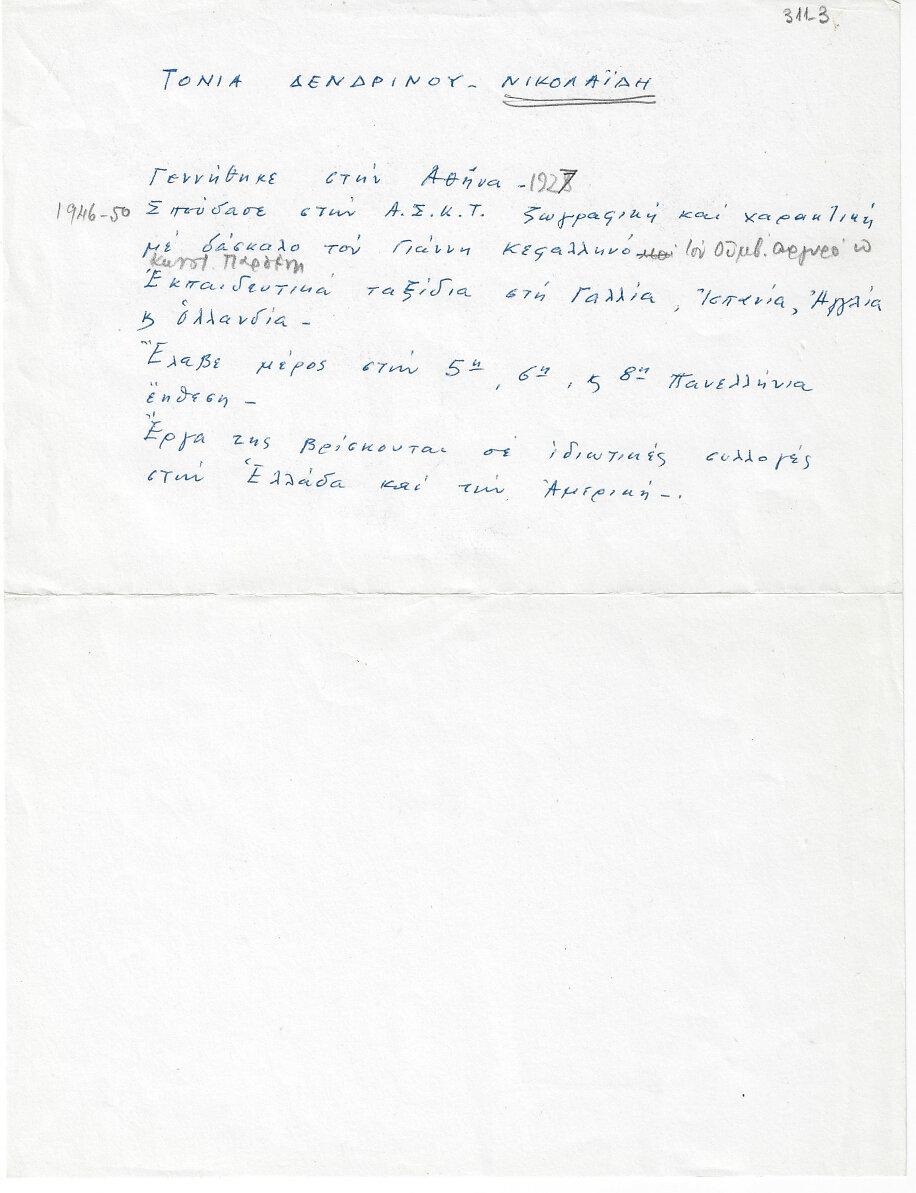 311-3
ΤΟΝΙΑ ΔΕΝΔΡΙΝΟΥ - ΝΙΚΟΛΑΪΔΗ
Γεννήθηκε στήν Ἀθήνα - 1927
1946-50 Σπούδασε στήν Α.Σ.Κ.Τ. ζωγραφική καί χαρακτική
μέ δάσκαλο τόν Γιάννη Κεφαλληνό καί τόν Οὐμβ. Αργυρό
Κωνστ. Παρθένη
Ἐκπαιδευτικά ταξίδια στή Γαλλία, Ἱσπανία, Ἀγγλία
κ Ὁλλανδία -
Ἔλαβε μέρος στήν 5η, 6η, κ 8η Πανελλήνια
ἔκθεση -
Ἔργα της βρίσκονται σέ ἰδιωτικές συλλογές
στήν Ἑλλάδα καί τήν Ἀμερική -.